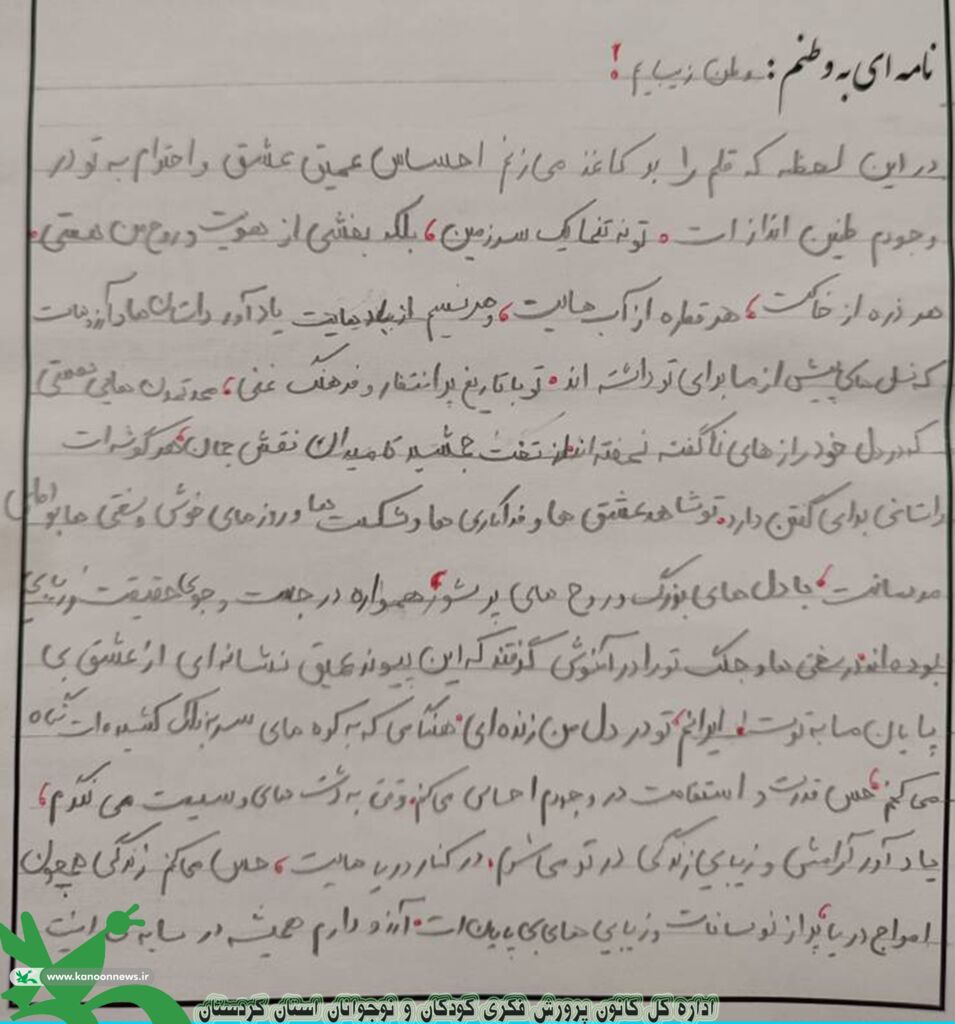 نامه ای به وطنم: وطن زیبایم!
در این لحظه که قلم را بر کاغذ می‌زنم احساس عمیق عشق و احترام به تو در
وجودم طنین انداز است. تو نه تنها یک سرزمین، بلکه بخشی از هویت و روح من هستی.
هر ذره از خاکت، هر قطره از آب هایت، و هر نسیم از بادهایت یادآور داستان‌ها و آرزوهاست
که نسل های پیش از ما برای تو داشته اند. تو با تاریخ پر افتخار و فرهنگ غنی، مهد تمدن هایی هستی
که در دل خود راز های ناگفته نهفته اند از تخت جمشید تا میدان نقش جهان، هر گوشه ات
داستانی برای گفتن دارد. تو شاهد عشق ها و فداکاری ها و شکست ها و روزهای خوش و سختی ها بو
مردمانت، با دل های بزرگ و روح های پر شور، همواره در جست و جوی حقیقت و زیبایی
بوده اند در سختی ها و جنگ تو را در آغوش گرفتند که این پیوند عمیق نشانه ای از عشق بی
پایان ما به توست! ایرانم، تو در دل من زنده ای. هنگامی که به کوه های سر به فلک کشیده ات نگاه
می کنم، حس قدرت و استقامت در وجودم احساس می کنم. وقتی به دشت های وسیعت می نگرم،
یاد آور آرامش و زیبایی زندگی در تو می باشم. در کنار دریا هایت، حس می کنم زندگی همچون
امواج دریا، پر از نوسانات و زیبایی های بی پایان است. آرزو دارم همیشه در سایه ی
www.kanoonnews.ir
اداره کل کانون پرورش فکری کودکان و نوجوانان استان کردستان